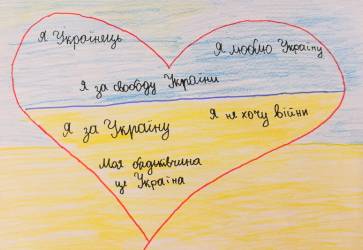 Я Українець
Я люблю Україну
Я за свободу України
Я за Україну
Я не хочу війни
Моя батьківчина
це Україна